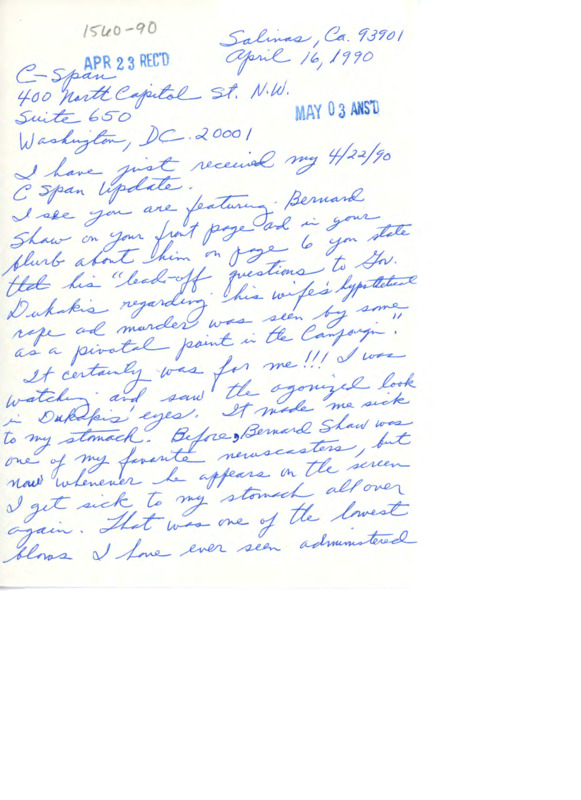 1560-90
Salinas, Ca. 93901
April 16, 1990
APR 23 REC'D
C-Span
400 North Capitol St. N.W.
Suite 650
MAY 03 ANS'D
Washington, DC. 20001
I have just received my 4/22/90
C Span Update.
I see you are featuring Bernard
Shaw on your front page ad in your
blurb about him on page 6 you state
that his "lead-off questions to Gov.
Dukakis regarding his wife's hypothetical
rape ad murder was seen by some
as a pivotal point in the Campaign."
It certainly was for me!!! I was
watching and saw the agonized look
in Dukakis' eyes. It made me sick
to my stomach. Before, Bernard Shaw was
one of my favorite newscasters, but
now whenever he appears on the screen
I get sick to my stomach all over
again. That was one of the lowest
blows I have ever seen administered